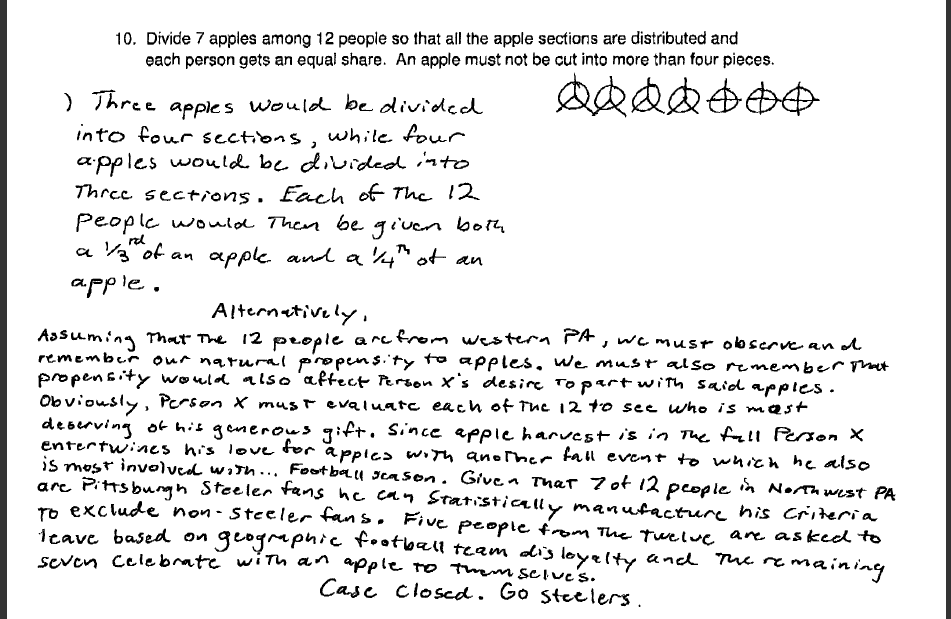 10. Divide 7 apples among 12 people so that all the apple sections are distributed and
each person gets an equal share. An apple must not be cut into more than four pieces.
) Three apples would be divided
into four sections, while four
apples would be divided into
Three sections. Each of The 12
People would Then be given both
a 1/3rd of an apple and a 1/4Th of an
apple.
Alternatively,
Assuming That The 12 people are from western PA, we must observe and
remember our natural propensity to apples. We must also remember That
propensity would also affect Person X's desire To part with said apples.
Obviously, Person X must evaluate each of The 12 to see who is most
deserving of his generous gift. Since apple harvest is in The fall Person X
entertwines his love for apples with another fall event to which he also
is most involved with... Football season. Given That 7 of 12 people in Northwest PA
are Pittsburgh Steeler fans he can Statistically manufacture his Criteria
To exclude non-Steeler fans. Five people from The Twelve are asked to
leave based on geographic football team disloyalty and The remaining
seven Celebrate with an apple To Themselves.
Case closed. Go Steelers.